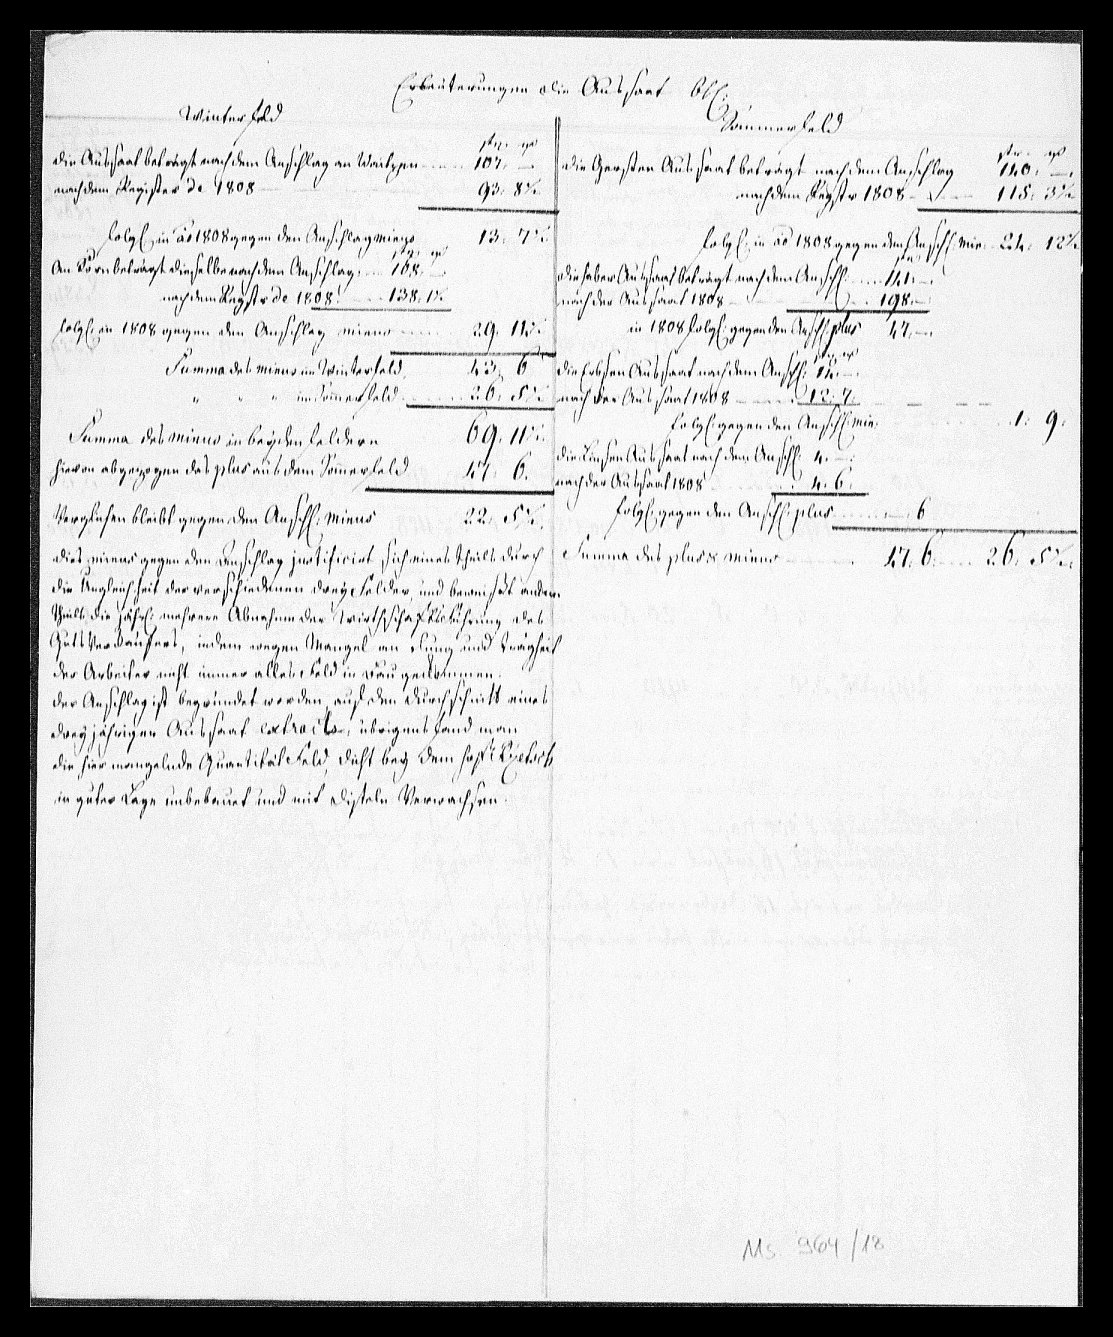 Erläuterungen die Aussaat btl:
Winterfeld
str: mz
die Aussaat beträgt nach dem Anschlag an Waitzen 107. —
nach dem Register de 1808 93. 8½
folgl: in ao 1808 gegen den Anschlag minus 13. 7½
str: mz
An Korn beträgt dieselbe nach dem Anschlag 168. —
nach dem Regstr de 1808. 138. 1½
folgl: in 1808 gegen den Anschlag minus 29. 11½
Summa des minus im Winterfeld 43. 6
" " " im Somerfeld 26. 5½
Summa des minus in beyden Feldern 69. 11½
hievon abgezogen das plus aus dem Somerfeld 47. 6.
Verglichen bleibt gegen den Anschl: minus 22. 5½
dies minus gegen den Anschlag justificirt sich eines theils durch
die Ungleichheit der verschiedenen drey Felder, und beweiset andern
theils die jährl: mehrere Abnahme der Wirthschaftsführung des
Guts Verkäufers, indem wegen Mangel an Dung und Trägheit
der Arbeiter nicht immer alles Feld in Bau gekommen.
der Anschlag ist begründet worden, auf den Durchschnitt eines
dreyjährigen Aussaat extracts, übrigens fand man
die hier mangelnde Quantität Feld dicht bey dem
in guter Lage unbebauet und mit Disteln Verwachsen.
Sommerfeld
str: mz
die Gersten Aussaat beträgt nach dem Anschlag 140. —.
nach dem Regstr 1808 115. 3½
folgl: in ao 1808 gegen den Anschl: min: 24. 12½
die Haber Aussaat beträgt nach dem Anschl: 151. —
nach der Aussaat 1808 198. —
in 1808 folgl: gegen den Anschl: plus 47. —
die Erbsen Aussaat nach dem Anschl: 14. —
nach der Aussaat 1808 12. 7.
folgl: gegen den Anschl: min: 1. 9.
die Linsen Aussaat nach dem Anschl: 4. —
nach der Aussaat 1808 4. 6.
folgl: gegen den Anschl: plus 6
Summa des plus & minus 47. 6. 26. 5½
Ms 964/18